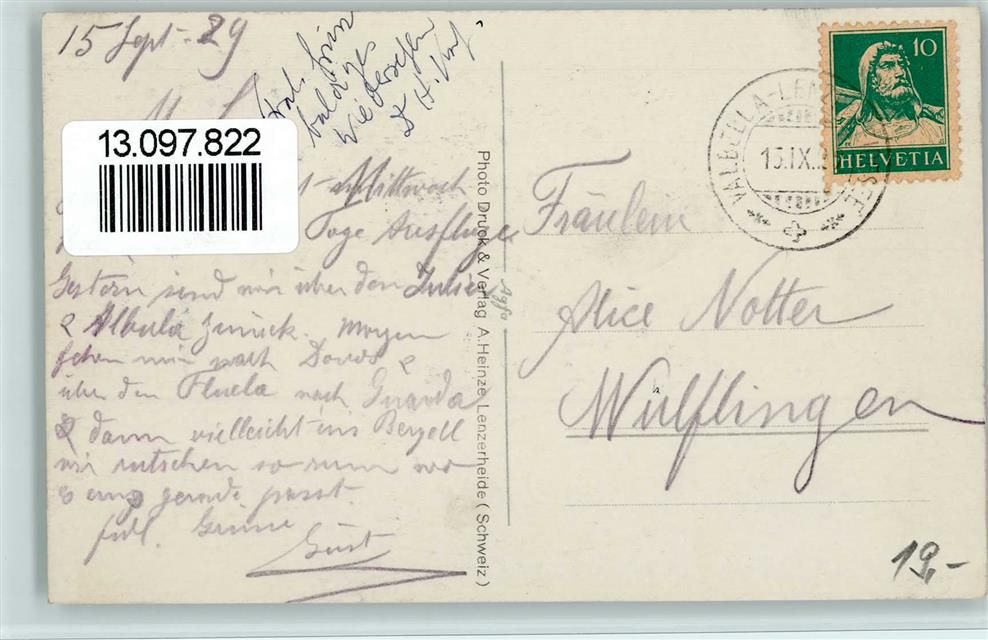 15 Sept. 29
baldiges
Wiedersehen
13.097.822
Mittwoch
Tage Ausflüge.
Gestern sind wir über den Julier
& Albula zurück. Morgen
gehen wir nach Davos &
über den Fluela nach Guarda
& dann vielleicht ins Bergell
wir rutschen so rum wo
es uns gerade passt.
frdl. Grüsse
Gust
Photo Druck & Verlag A. Heinze, Lenzerheide (Schweiz)
Agfa
VALBELLA-LEN
15.IX.
10
HELVETIA
Fräulein
Alice Notter
Wülflingen
19,-